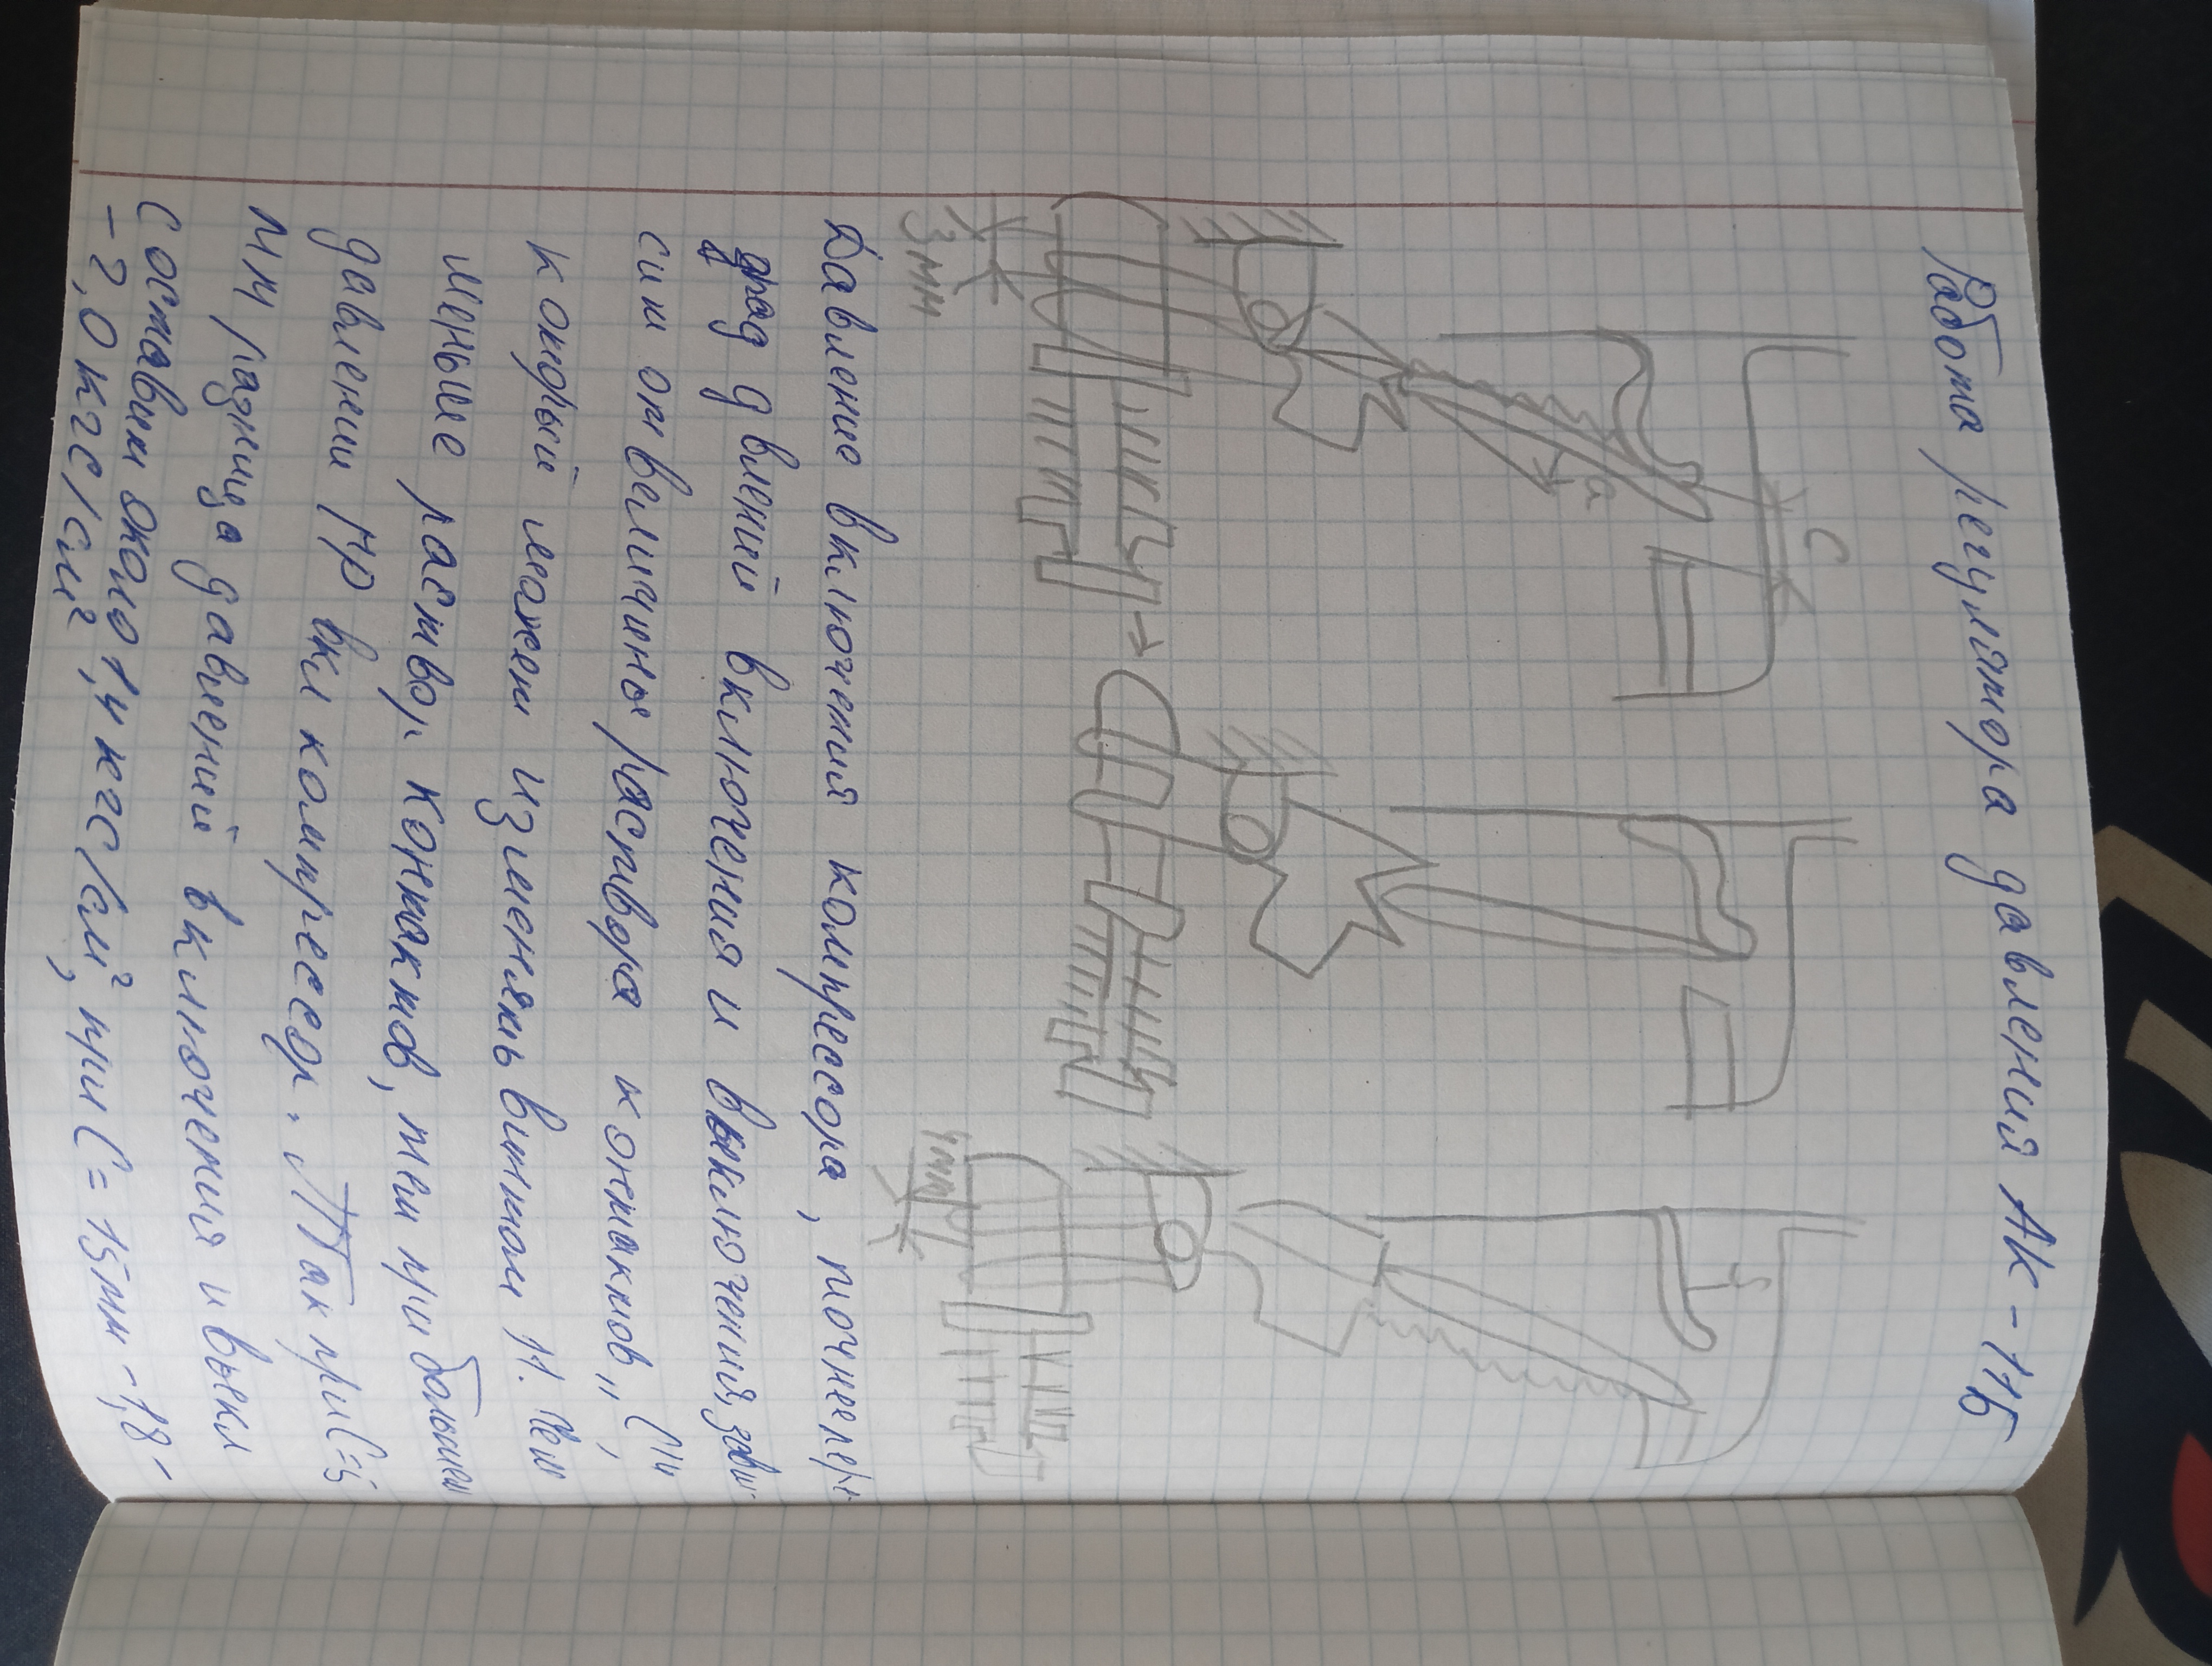 Работа регулятора давления АК-11Б
C
a
S
3 мм
4мм
Давление включения компрессора, точнее
давлений включения и выключения, зави-
сит от величины раствора контактов „С"
который может изменять винтом 11. Чем
меньше раствор контактов, тем при большем
давлении МР вкл компрессор. Так при С=5
мм разница давлений включения и выкл
составит около 1,4 кгс/см², при С=15мм - 1,8 -
- 2,0 кгс/см²